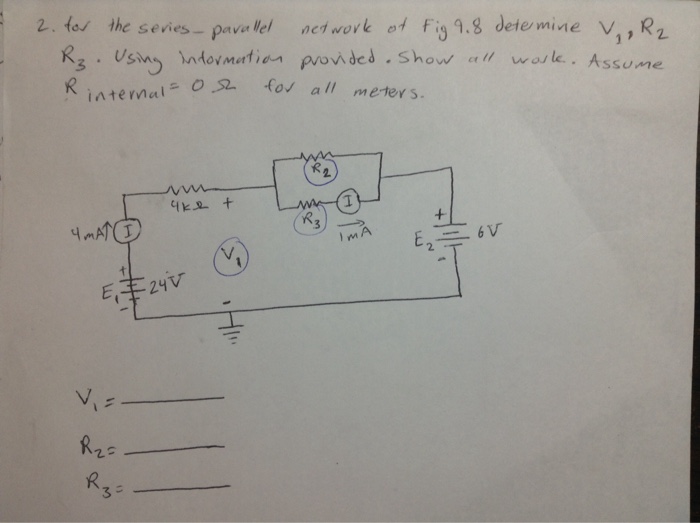 2. for the series-parallel network of Fig 9.8 determine V1, R2
R3. Using information provided. Show all work. Assume
R internal = 0 Ω for all meters.
R2
4kΩ +
R3
I
1mA
4mA↑ I
V1
+
E2 6V
-
+
E1 24V
-
-
V1 =
R2 =
R3 =